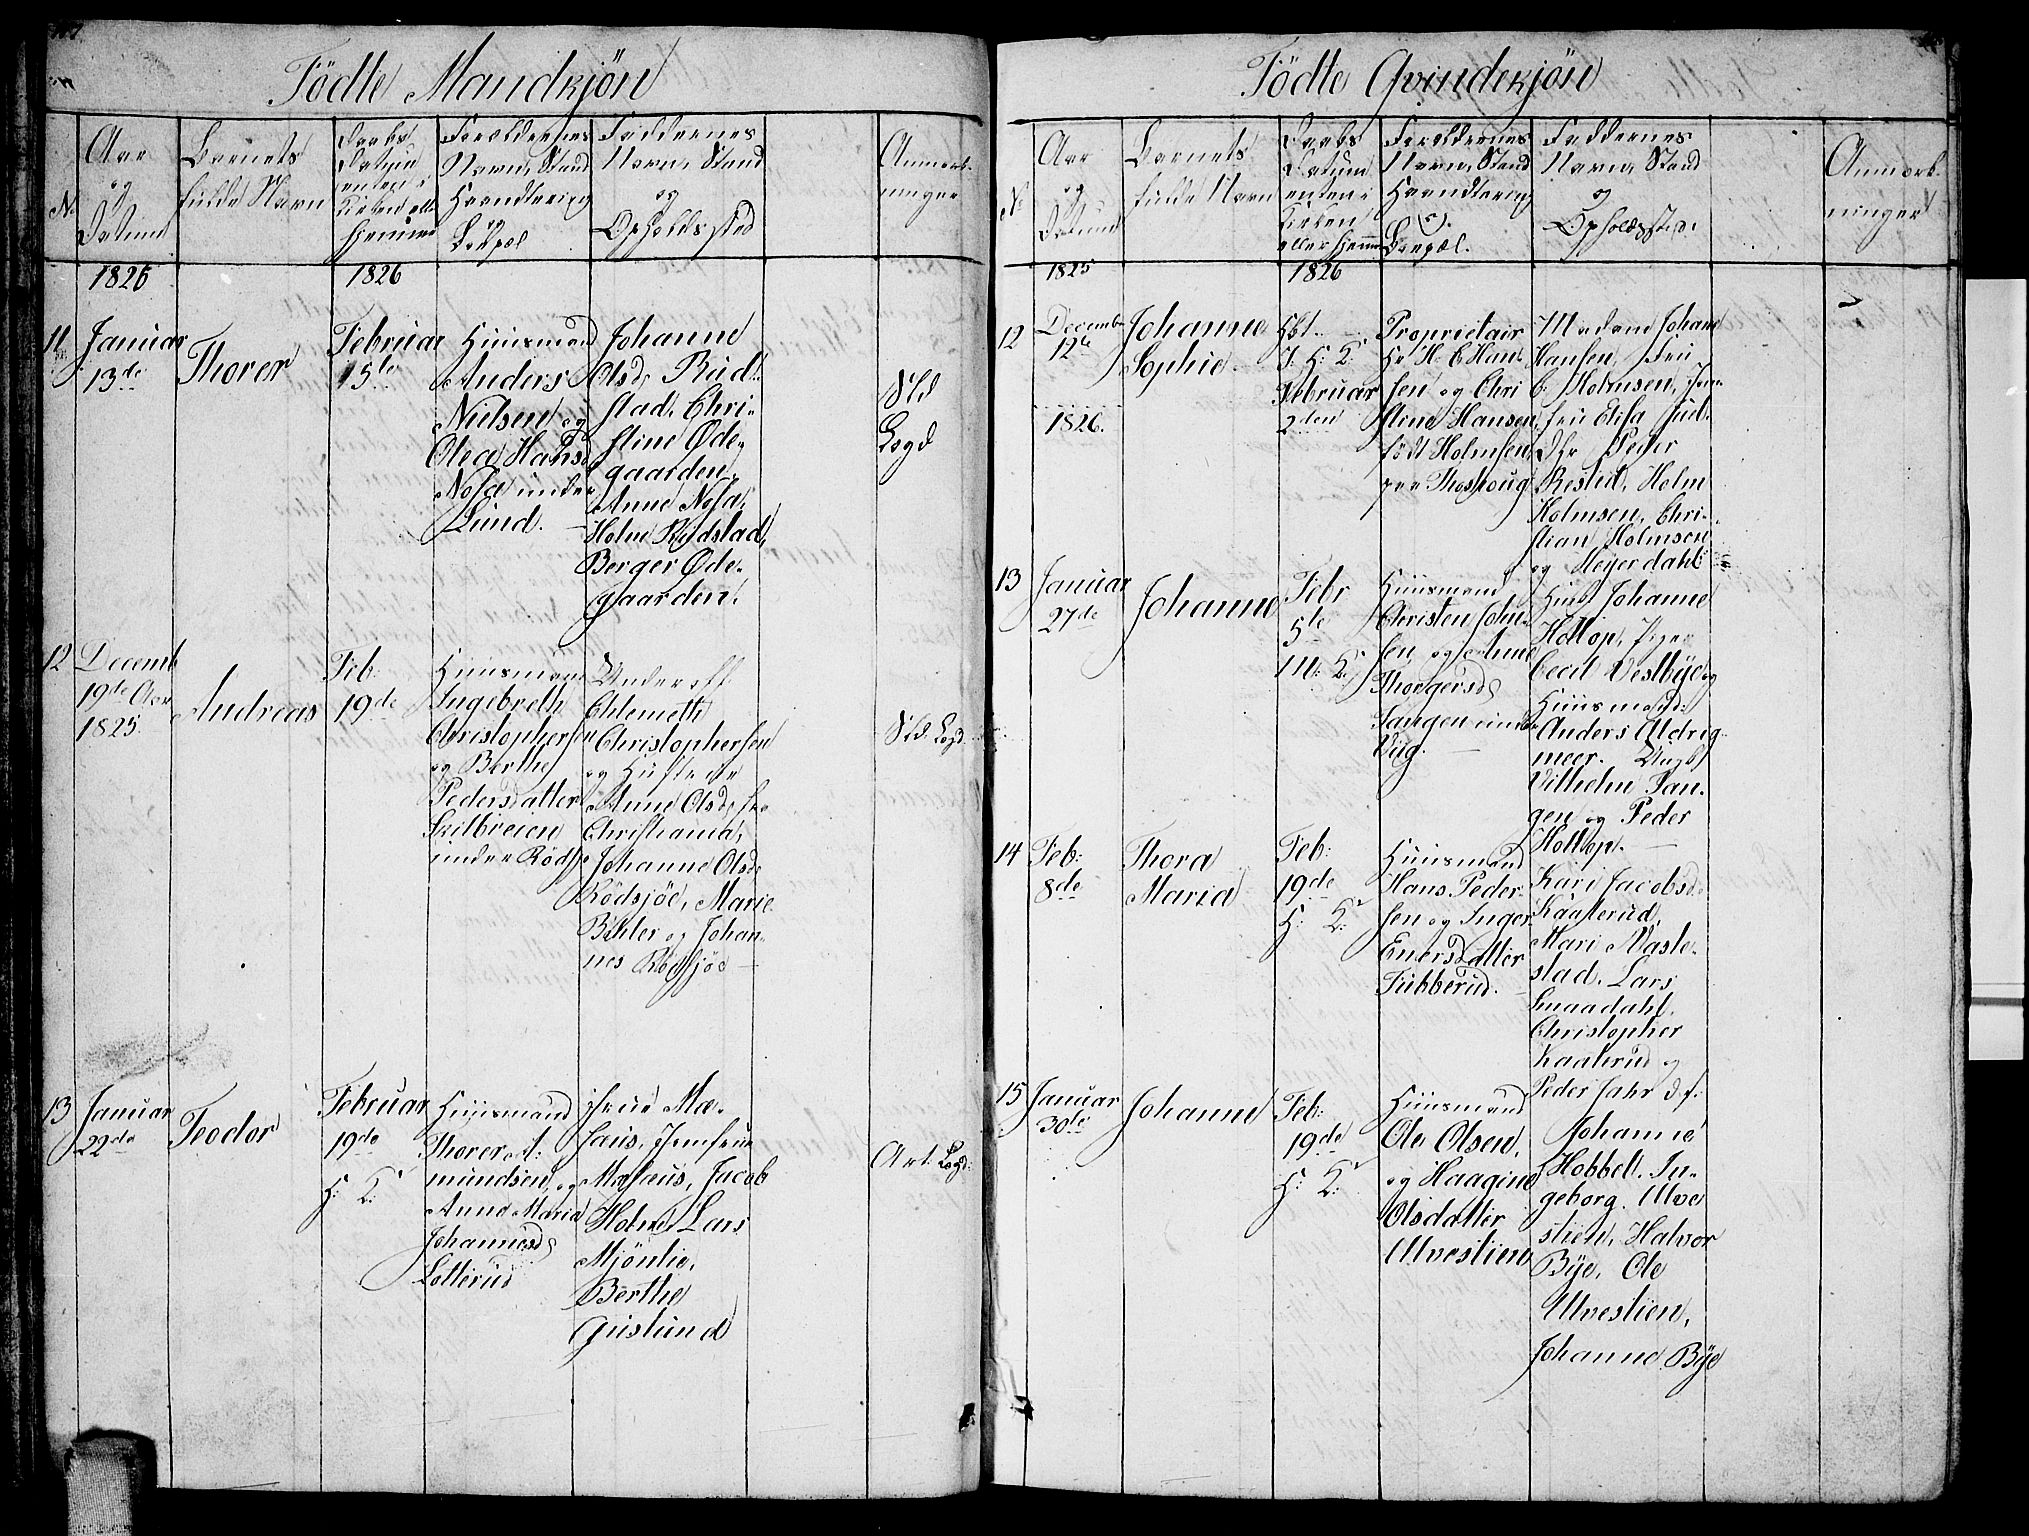 Födte Mandkjön
No
Aar
og
Datum
Barnets
fulde Navn
Daabs
Datum
enten i
Kirken eller
hjemme
Forældrenes
Navn, Stand
Haandtering
og
Bopæl
Faddernes
Navn, Stand
og
Opholdssted
Anmærk-
ninger
1826
1826
11
Januar
13de
Thorer
Februar
15de
Huusmand
Anders
Nielsen og
Olea Hansd
under
Lund.
Johanne
Olsd. Rud-
stad, Chri-
stine Øde-
gaarden,
Anne
Holm Rudstad,
Berger Øde-
gaarden.
12
Decemb
19de Aar
1825.
Andreas
Feb.
19de
Huusmand
Ingebreth
Christophersen
og Berthe
Pedersdatter
under Rödsjö
Underoff.
Christophersen
og Hustrue
Anne Olsd. fra
Christiania,
Johanne Olsd.
Rödsjöe, Marie
og Johan-
nes Rödsjöe
13
Januar
22de
Teodor
Februar
19de
H: K:
Huusmand
Thorer A-
mundsen, og
Anne Maria
Johannesd
Lotterud
Jacob
Holm, Lars
Mjönlie,
Berthe
Guslund
Födte Qvindekjön
No
Aar
og
Datum
Barnets
fulde Navn
Daabs
Datum
enten i
Kirken
eller hjemme
Forældrenes
Navn, Stand
Haandtering
og
Bopæl.
Faddernes
Navn, Stand
og
Opholdssted.
Anmærk-
ninger
1825
1826
12
Decembr
12te
1826.
Johanne
Sophie
H: K:
Februar
2den
Proprietair
Hr H. C. Han-
sen og Chri
stine Hansen
født Holmsen
paa
Madam Johanne
Hansen, Fru
C. Holmsen, Jom-
fru Elisa
Peder
Holm
Holmsen, Chri-
stian Holmsen
og Heyerdahl
13
Januar
27de
Johanne
Febr
5te
M: K:
Huusmand
Christen John-
sen og Anne
Thorgersd
Tangen under
Johanne
Holtop, Piger
Cecil Vestbye og
Huusmand
Anders Aldrig-
meer. Ungk.
Vilhelm Tan-
gen og Peder
Holtop.
14
Feb:
8de
Thora
Maria
Feb:
19de
H: K:
Huusmand
Hans Peder-
sen og Inger
Enersdatter
Fubberud.
Kari Jacobsd.
Kaaterud,
Mari Naste-
stad, Lars
Smaadahl,
Christopher
Kaaterud og
Peder Jahr
15
Januar
30de
Johanne
Feb:
19de
H: K:
Huusmand
Ole Olsen,
og Haagine
Olsdatter
Ulvestien
Johanne
Hobbel, In-
geborg Ulve
stien, Halvor
Bye, Ole
Ulvestien,
Johanne Bye